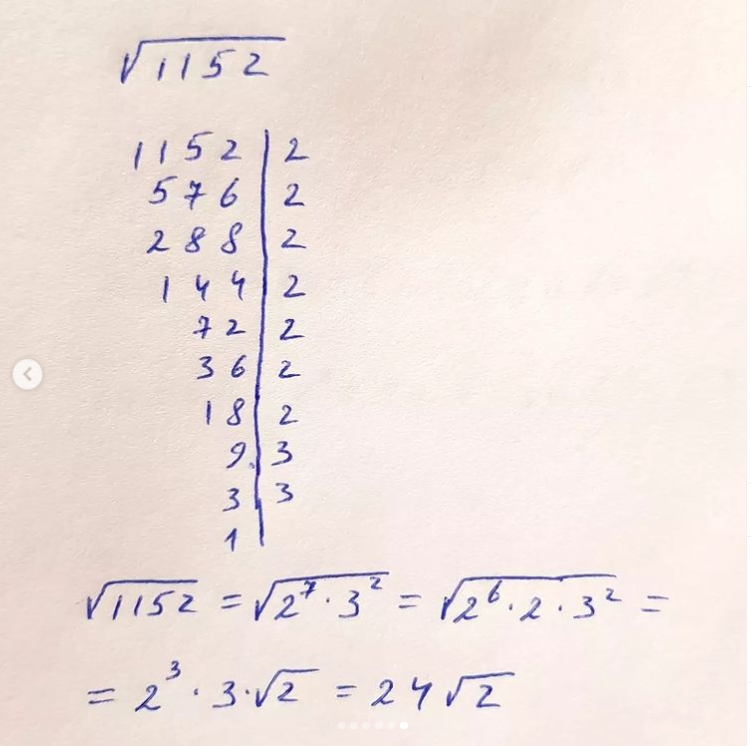 √1152
1152 | 2
576 | 2
288 | 2
144 | 2
72 | 2
36 | 2
18 | 2
9 | 3
3 | 3
1 |
√1152 = √2⁷·3² = √2⁶·2·3² =
= 2³·3·√2 = 24√2